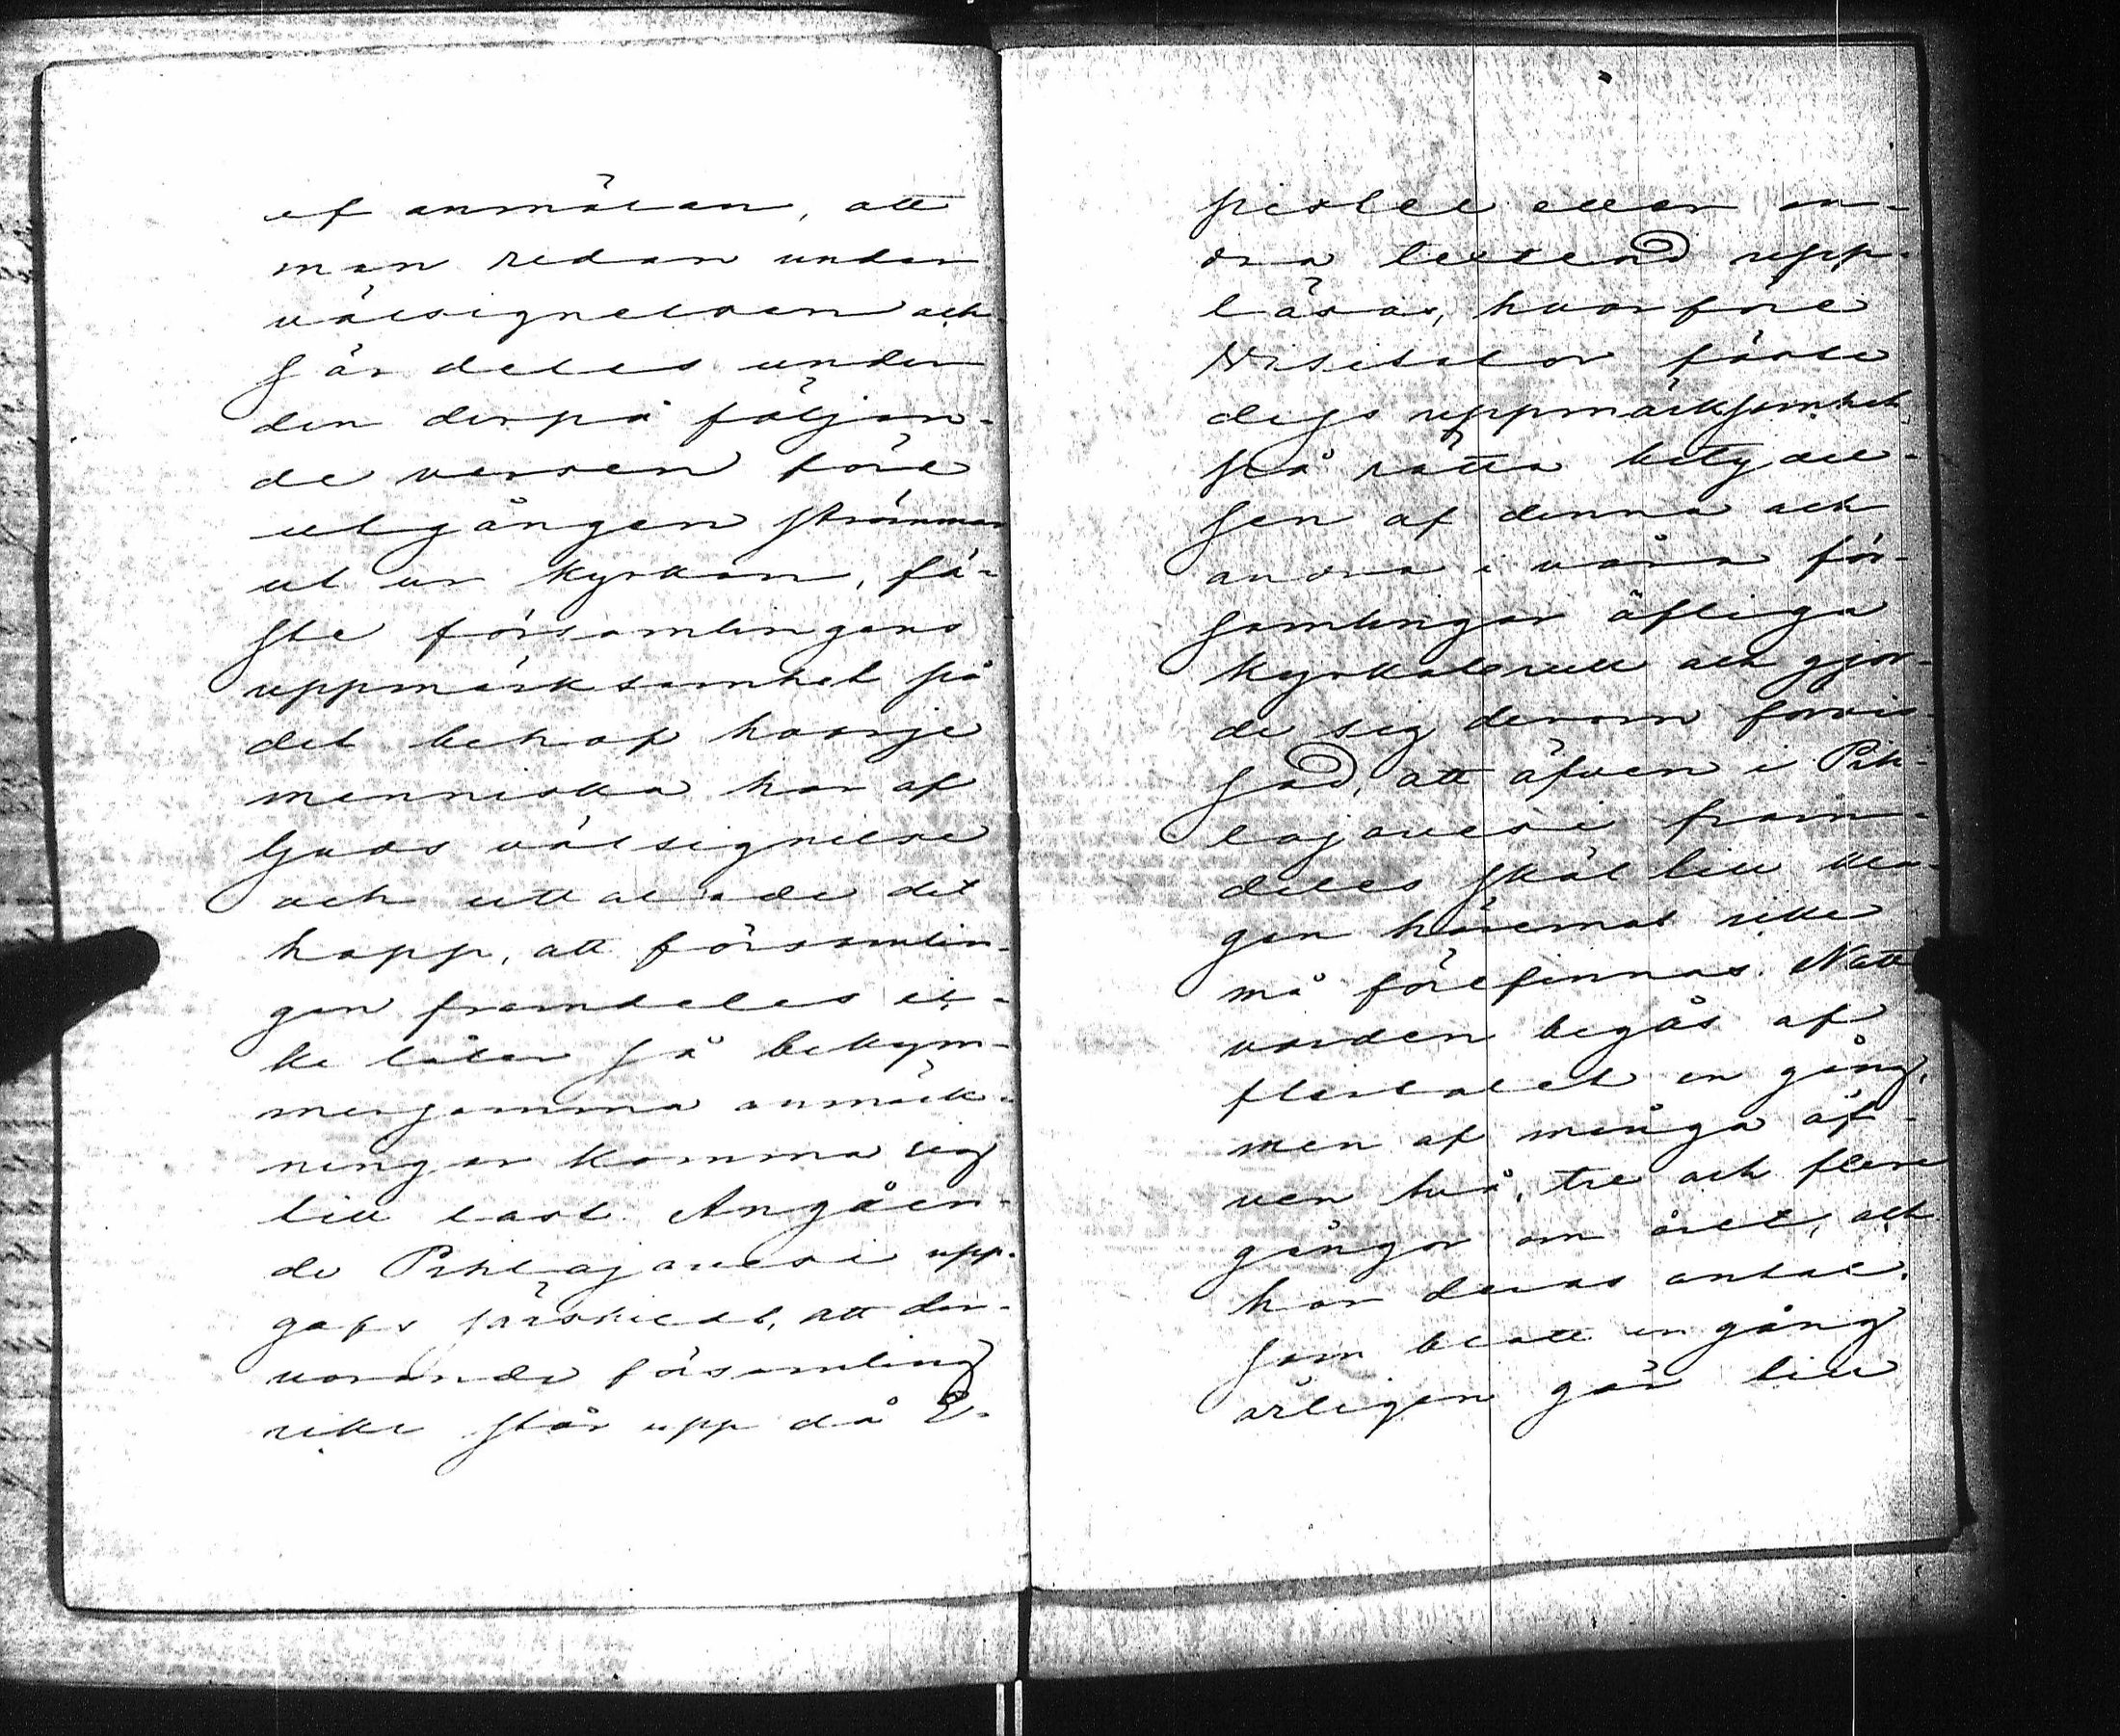 af anmälan, att
man redan under
välsignelsen och
särdeles under
den derpå följan-
de versen före
utgången strömmar
ut ur kyrkan, fä-
ste församlingens
uppmärksamhet på
det behof hvarje
menniska har af
Guds välsignelse
och uttalade det
hopp, att församlin-
gen framdeles ic-
ke låter så bekym-
mersamma anmärk-
ningar komma sig
till last. Angåen-
de Pihlajavesi upp-
gafs särskildt, att der-
varande församling
icke står upp då E-
pistel eller an-
dra textend upp-
läsas, hvarföre
Visitator fäste
dess uppmärksamhet
på rätta betydel-
sen af denna och
andra i våra för-
samlingar öfliga
kyrkobruk och gjor-
de sig derom förvis-
sad, att äfven i Pih-
lajavesi fram-
deles skäl till kla-
gan häremot icke
må förefinnas. Natt-
varden begås af
flertalet en gång,
men af många äf-
ven två, tre och flere
gångor om året, och
har deras antal,
som blott en gång
årligen går till